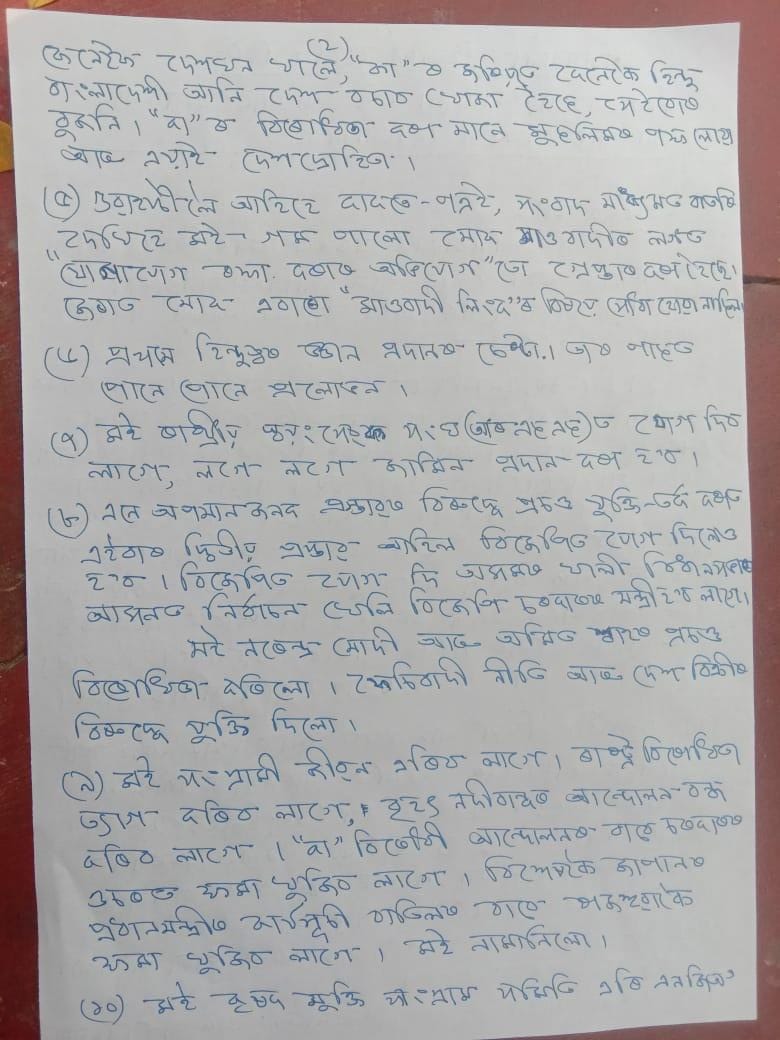 (২)
কেনেকৈ দেশখন খালে, "কা"ৰ জৰিয়তে কেনেকৈ হিন্দু
বাংলাদেশী আনি দেশ বচাব খোজা হৈছে, সেইবোৰ
বুজনি। "কা"ৰ বিৰোধিতা কৰা মানে মুছলিমৰ পক্ষ লোৱা
আৰু এয়াই দেশদ্ৰোহিতা।
(৫) গুৱাহাটীলৈ আহিহে কাকতে-পত্ৰই, সংবাদ মাধ্যমত বাতৰি
দেখিহে মই গম পালো মোক মাওবাদীৰ লগত
"যোগাযোগ ৰখা কৰাৰ অভিযোগ"তে গ্ৰেপ্তাৰ কৰা হৈছে।
জেৰাত মোক এবাৰো "মাওবাদী লিংক"ৰ বিষয়ে সোধা হোৱা নাছিল।
(৬) প্ৰথমে হিন্দুত্বৰ জ্ঞান প্ৰদানৰ চেষ্টা। তাৰ পাছত
পোনে পোনে প্ৰলোভন।
(৭) মই ৰাষ্ট্ৰীয় স্বয়ংসেৱক সংঘ(আৰ এছ এছ)ত যোগ দিব
লাগে, লগে লগে জামিন প্ৰদান কৰা হ'ব।
(৮) এনে অপমানজনক প্ৰস্তাৱৰ বিৰুদ্ধে প্ৰচণ্ড যুক্তি-তৰ্ক কৰাত
এইবাৰ দ্বিতীয় প্ৰস্তাৱ আহিল বিজেপিত যোগ দিলেও
হ'ব। বিজেপিত যোগ দি অসমৰ খালী বিধানসভাৰ
আসনত নিৰ্বাচন খেলি বিজেপি চৰকাৰৰ মন্ত্ৰী হ'ব লাগে।
মই নৰেন্দ্ৰ মোদী আৰু অমিত শ্বাহৰ প্ৰচণ্ড
বিৰোধিতা কৰিলো। ফেচিবাদী নীতি আৰু দেশ বিক্ৰীৰ
বিৰুদ্ধে যুক্তি দিলো।
(৯) মই সংগ্ৰামী জীৱন এৰিব লাগে। ৰাষ্ট্ৰ বিৰোধিতা
ত্যাগ কৰিব লাগে, বৃহৎ নদীবান্ধৰ আন্দোলন বন্ধ
কৰিব লাগে। "কা" বিৰোধী আন্দোলনৰ বাবে চৰকাৰৰ
ওচৰত ক্ষমা খুজিব লাগে। বিশেষকৈ জাপানৰ
প্ৰধানমন্ত্ৰীৰ কাৰ্যসূচী বাতিলৰ বাবে
ক্ষমা খুজিব লাগে। মই নামানিলো।
(১০) মই কৃষক মুক্তি সংগ্ৰাম সমিতি এৰি এনজিঅ'